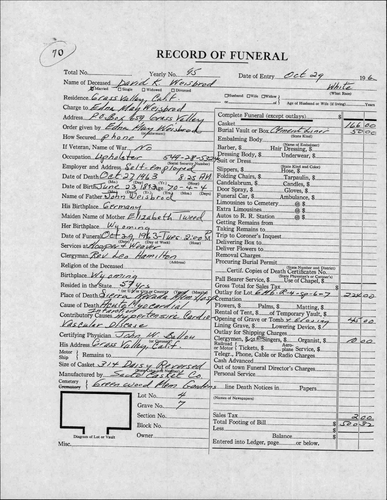 70
RECORD OF FUNERAL
Total No. Yearly No. 45 Date of Entry Oct 29 196
Name of Deceased David R. Weisbrod White
Married Single Widowed Divorced Husband Wife Widow of (What Race)
Residence Grass Valley, Calif Age of Husband or Wife (if living) Years
Charge to Edna May Weisbrod
Address P.O. Box 659 Grass Valley
Order given by Edna May Weisbrod
How Secured Phone
If Veteran, Name of War No
Occupation Upholster 549-28-
Employer and Address Self-Employed
Date of Death Oct 27 1963 8:25 AM
Date of Birth June 23, 1893 70-4-4
Name of Father John Weisbrod
His Birthplace Germany
Maiden Name of Mother Elizabeth Tweed
Her Birthplace Wyoming
Date of Funeral Oct 29, 1963 - Tues 2:00 PM
Services at Hooper & Weaver
Clergyman Rev Lea Hamilton
Religion of the Deceased
Birthplace Wyoming
Resided in the State 57 yrs
Place of Death Sierra Nevada Mem Hosp
Cause of Death Acute Myocardial Infarction
Contributory Causes Hypertensive Cardio
Vascular Disease
Certifying Physician John W.
His Address Grass Valley, Calif
Motor Ship Remains to
Size of Casket 314 Daisy Reversed
Manufactured by Casket Co.
Cemetery Crematory Greenwood Mem Gardens
Lot No. 4
Grave No. 7
Section No.
Block No.
Owner
Diagram of Lot or Vault
Misc.
Complete Funeral (except outlays) $
Casket 166.00
Burial Vault or Box Cement Liner 50.00
(State Kind)
Embalming Body
(Name of Embalmer)
Barber, $ Hair Dressing, $
Dressing Body, $ Underwear, $
Suit or Dress
(State Kind and Color)
Slippers, $ Hose, $
Folding Chairs, $ Tarpaulin, $
Candelabrum, $ Candles, $
Door Spray, $ Gloves, $
Funeral Car, $ Ambulance, $
Limousines to Cemetery @ $
Extra Limousines @ $
Autos to R. R. Station @ $
Getting Remains
Taking Remains
Trip to Coroner's Inquest
Delivering Box to
Deliver Flowers to
Removal Charges
Procuring Burial Permit
(State Number and District)
Certif. Copies of Death Certificates No.
Pall Bearer Service, $ Use of Chapel, $
Gross Total for Sale Tax
Outlay for Lot 224.00
Flowers, $ Palms, $ Matting, $
Rental of Tent, $ of Temporary Vault, $
Opening of Grave or Tomb & closing 45.00
Lining Grave, $ Lowering Device, $
Outlay for Shipping Charges
Clergyman, $ Singers, $ Organist, $ 10.00
Railroad or Motor Tickets, $ Aeroplane Service, $
Telegr., Phone, Cable or Radio Charges
Cash Advanced
Out of town Funeral Director's Charges
Personal Service
line Death Notices in Papers
(Names of Newspapers)
Sales Tax
Total Footing of Bill $
Less Balance $
Entered into Ledger, page or below,